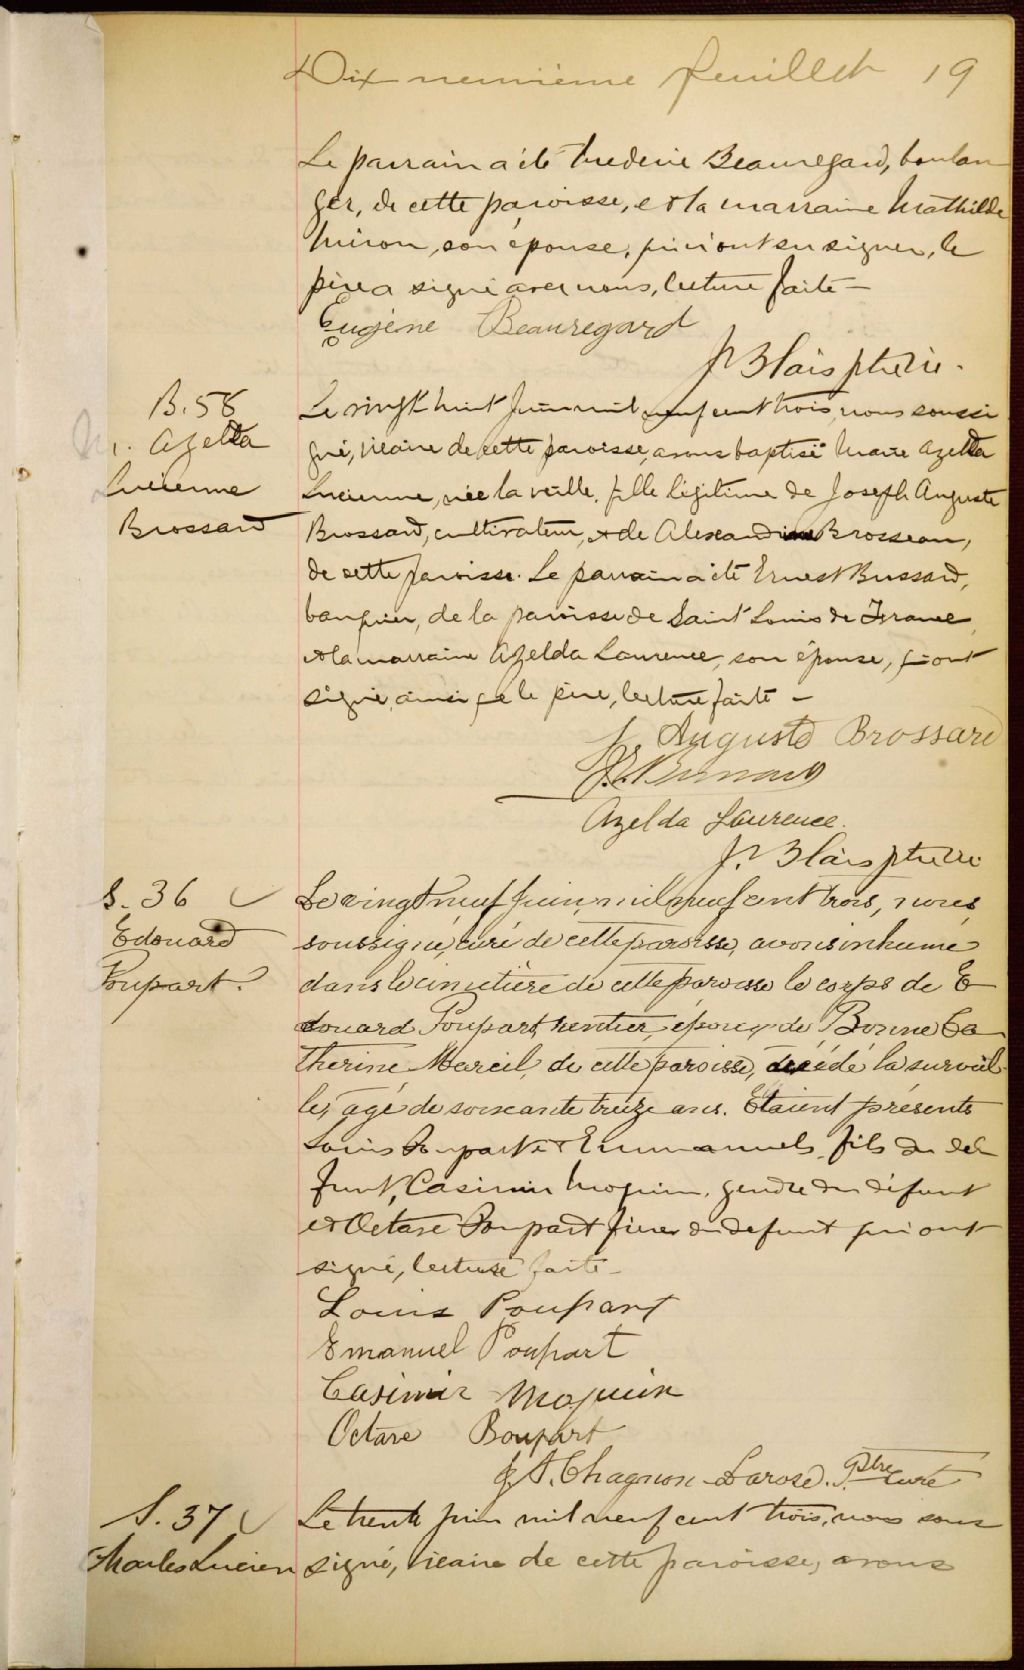 Dix neuvième feuillet 19
Le parrain a été Frederic Beauregard, boulan
ger, de cette paroisse, et la marraine Mathilde
Miron, son épouse, qui n'ont su signer, le
père a signé avec nous, lecture faite —
Eugène Beauregard
J Blais ptre vic.
B. 58
M. Azelda
Lucienne
Brossard
Le vingt huit Juin mil neuf cent trois, nous soussi
gné, vicaire de cette paroisse, avons baptisé Marie Azelda
Lucienne, née la veille, fille légitime de Joseph Auguste
Brossard, cultivateur, et de Alexandrine Brosseau,
de cette paroisse. Le parrain a été Ernest Brossard,
banquier, de la paroisse de Saint Louis de France
et la marraine Azelda Laurence, son épouse, qui ont
signé, ainsi que le père, lecture faite —
J. Auguste Brossard
J. E. Brossard
Azelda Laurence.
J. Blais ptre vic
S. 36
Edouard
Poupart.
Le vingt neuf Juin, mil neuf cent trois, nous
soussigné, curé de cette paroisse, avons inhumé
dans le cimetière de cette paroisse le corps de E
douard Poupart, rentier, époux de Bonne Ca
therine Mareil, de cette paroisse, décédé la surveil
le, agé de soixante treize ans. Etaient présents
Louis Poupart et Emmanuel, fils du dé
funt, Casimir Moquin, gendre du défunt
et Octave Poupart frère du defunt qui ont
signé, lecture faite —
Louis Poupart
Emanuel Poupart
Casimir Moquin
Octave Poupart
J A. Chagnon-Larose. Ptre Curé
S. 37
Charles Lucien
Le trente juin mil neuf cent trois, nous sous
signé, vicaire de cette paroisse, avons